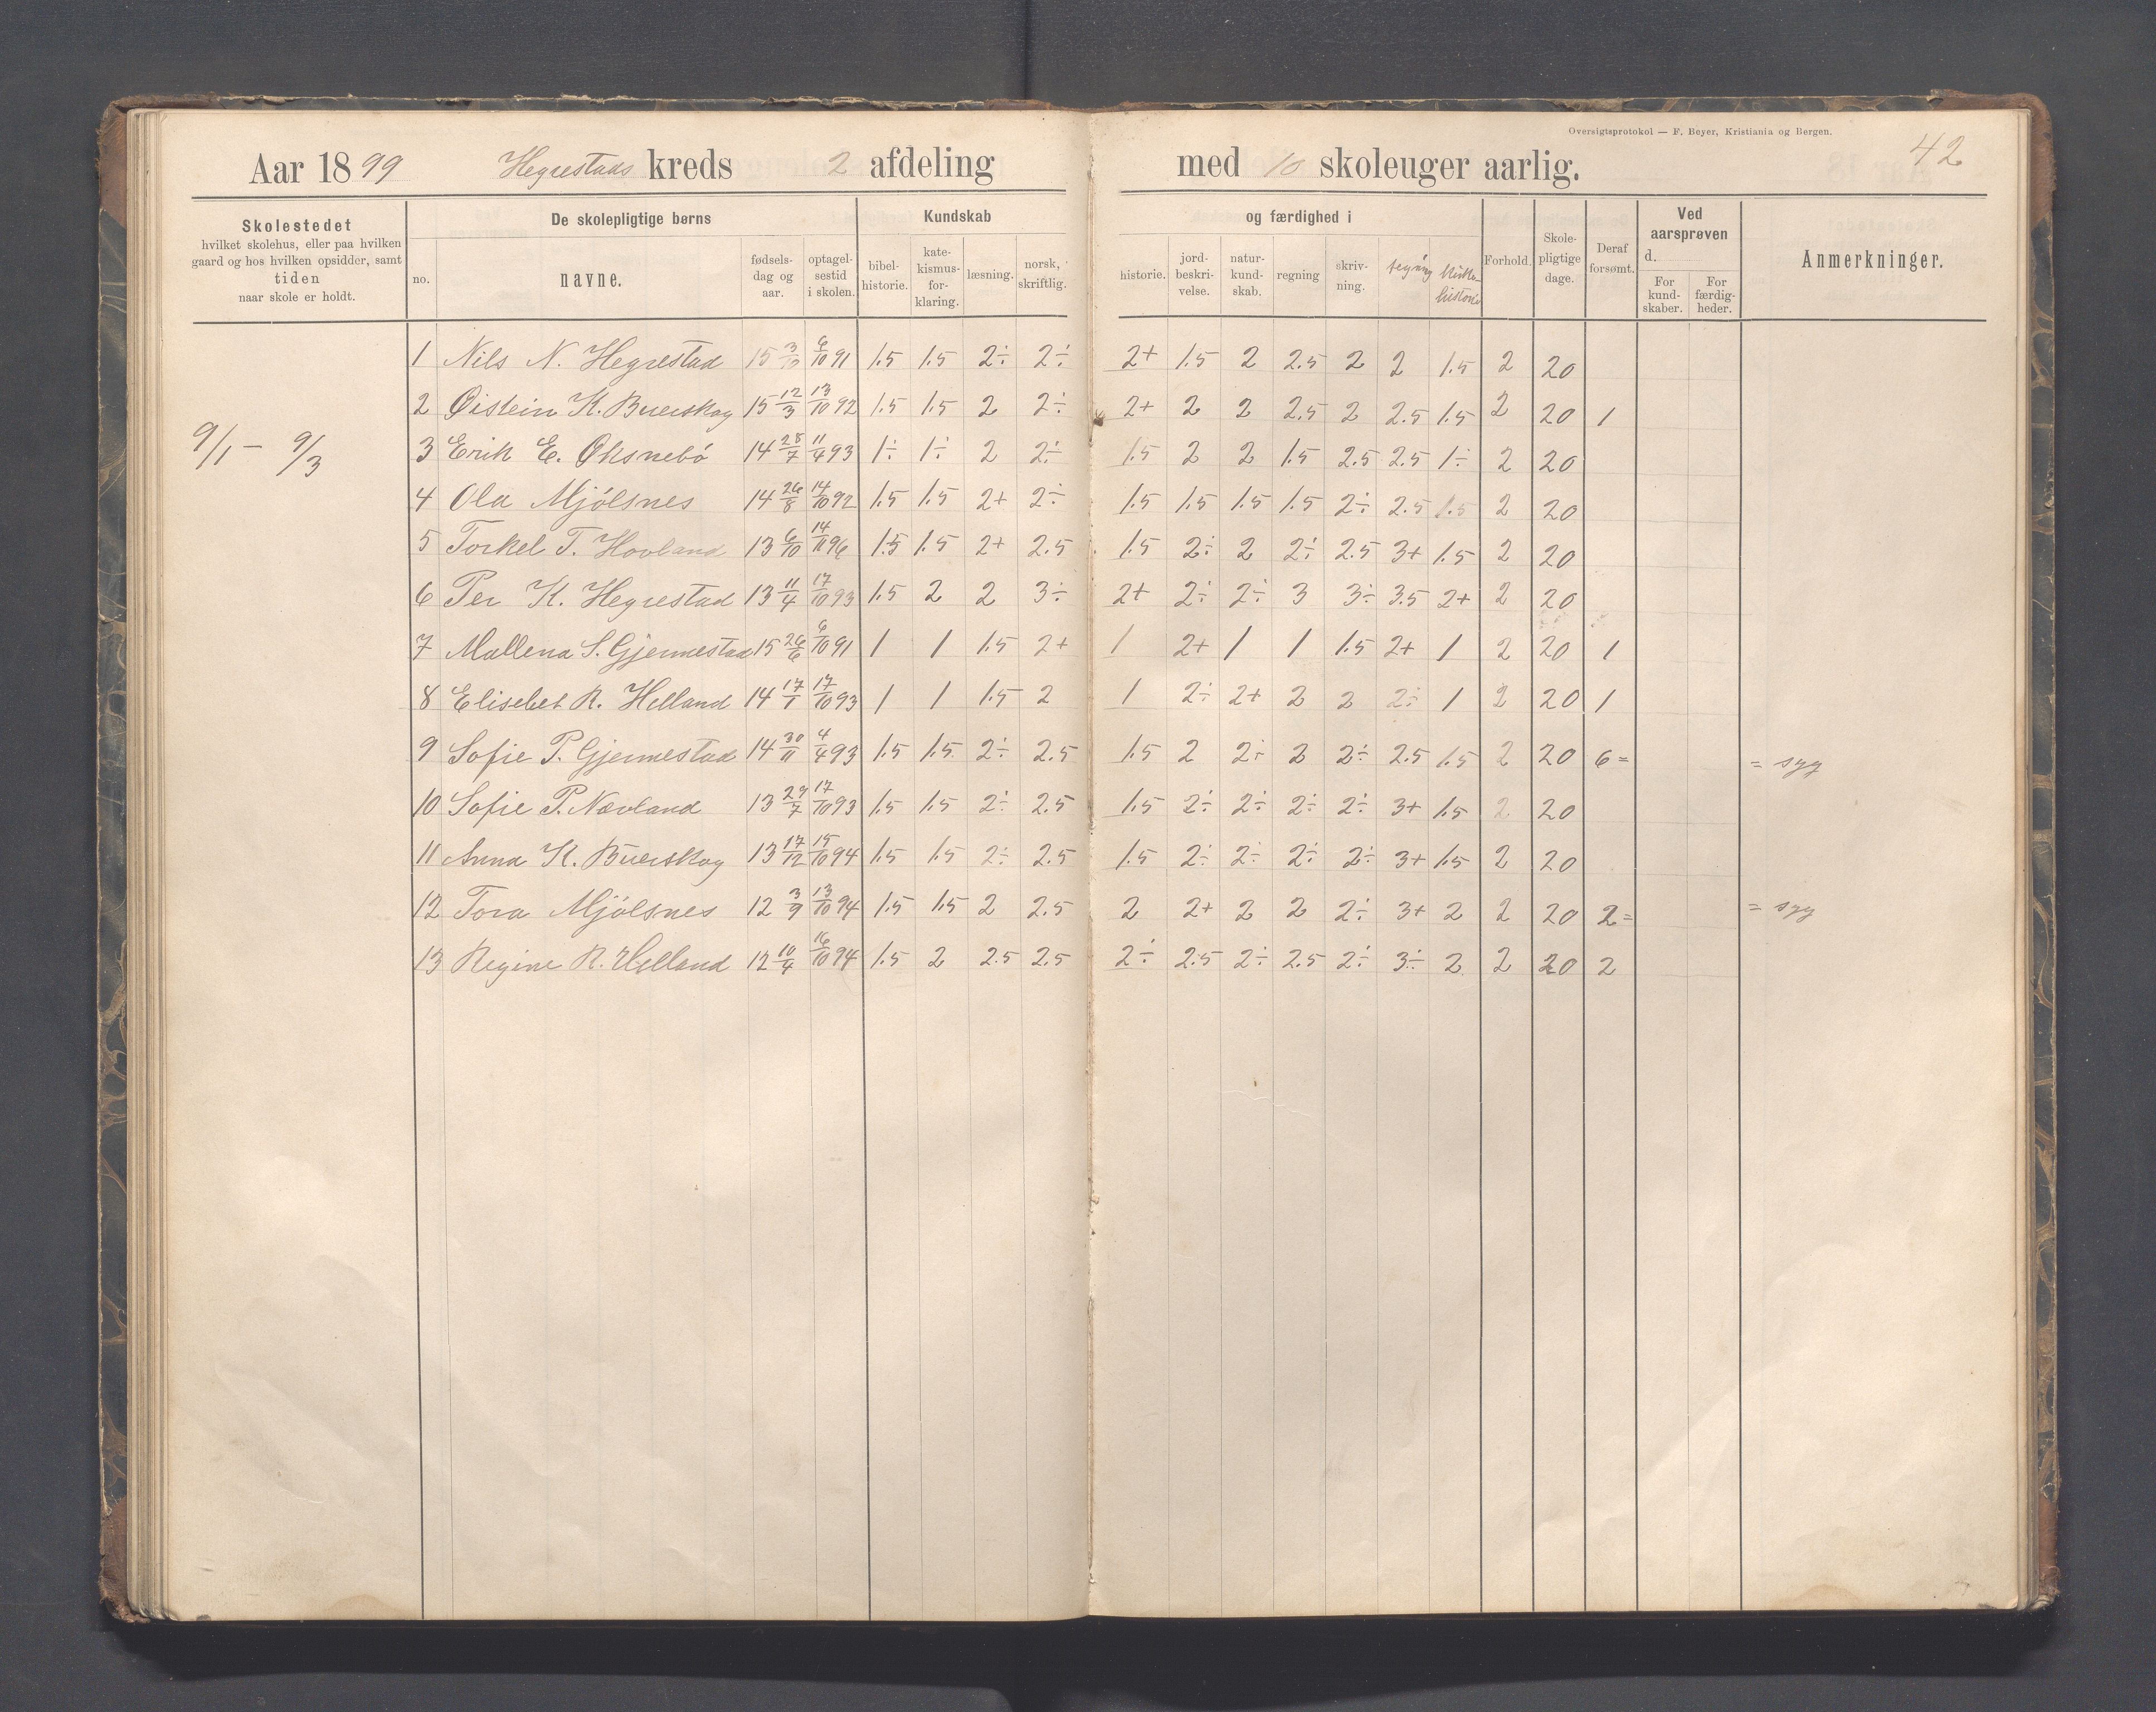 Oversigtsprotokol — F. Beyer, Kristiania og Bergen.
42
Aar 1899 Hegrestads kreds 2 afdeling med 10 skoleuger aarlig.
Skolestedet
hvilket skolehus, eller paa hvilken
gaard og hos hvilken opsidder, samt
tiden
naar skole er holdt.
De skolepligtige børns
no.
navne.
fødsels-
dag og
aar.
optagel-
sestid
i skolen.
Kundskab
bibel-
historie.
kate-
kismus-
for-
klaring.
læsning.
norsk,
skriftlig.
og færdighed i
historie.
jord-
beskri-
velse.
natur-
kund-
skab.
regning
skriv-
ning.
tegning
kirke
historie
Forhold.
Skole-
pligtige
dage.
Deraf
forsømt.
Ved
aarsprøven
d.
For
kund-
skaber.
For
færdig-
heder.
Anmerkninger.
9/1 - 9/3
1 Nils N. Hegrestad 15 3/10 6/10 91 1.5 1.5 2÷ 2÷ 2+ 1.5 2 2.5 2 2 1.5 2 20
2 Øistein K. Buerskog 15 12/3 13/10 92 1.5 1.5 2 2÷ 2+ 2 2 2.5 2 2.5 1.5 2 20 1
3 Erik E. Øksnebö 14 28/7 11/4 93 1÷ 1÷ 2 2÷ 1.5 2 2 1.5 2.5 2.5 1÷ 2 20
4 Ola Mjölsnes 14 26/8 14/10 92 1.5 1.5 2+ 2÷ 1.5 1.5 1.5 1.5 2÷ 2.5 1.5 2 20
5 Torkel T. Hovland 13 6/10 14/11 96 1.5 1.5 2+ 2.5 1.5 2÷ 2 2÷ 2.5 3+ 1.5 2 20
6 Per K. Hegrestad 13 11/4 17/10 93 1.5 2 2 3÷ 2+ 2÷ 2÷ 3 3÷ 3.5 2+ 2 20
7 Mallena S. Gjermestad 15 26/6 6/10 91 1 1 1.5 2+ 1 2+ 1 1 1.5 2+ 1 2 20 1
8 Elisebet R. Helland 14 17/1 17/10 93 1 1 1.5 2 1 2÷ 2+ 2 2 2÷ 1 2 20 1
9 Sofie P. Gjermestad 14 30/11 4/4 93 1.5 1.5 2÷ 2.5 1.5 2 2÷ 2 2÷ 2.5 1.5 2 20 6= = syg
10 Sofie P. Nævland 13 29/7 17/10 93 1.5 1.5 2÷ 2.5 1.5 2÷ 2÷ 2÷ 2÷ 3+ 1.5 2 20
11 Anna K. Buerskog 13 17/12 15/10 94 1.5 1.5 2÷ 2.5 1.5 2÷ 2÷ 2÷ 2÷ 3+ 1.5 2 20
12 Tora Mjölsnes 12 3/9 13/10 94 1.5 1.5 2 2.5 2 2+ 2 2 2÷ 3+ 2 2 20 2= = syg
13 Regine R. Helland 12 10/4 16/10 94 1.5 2 2.5 2.5 2÷ 2.5 2÷ 2.5 2÷ 3÷ 2 2 20 2